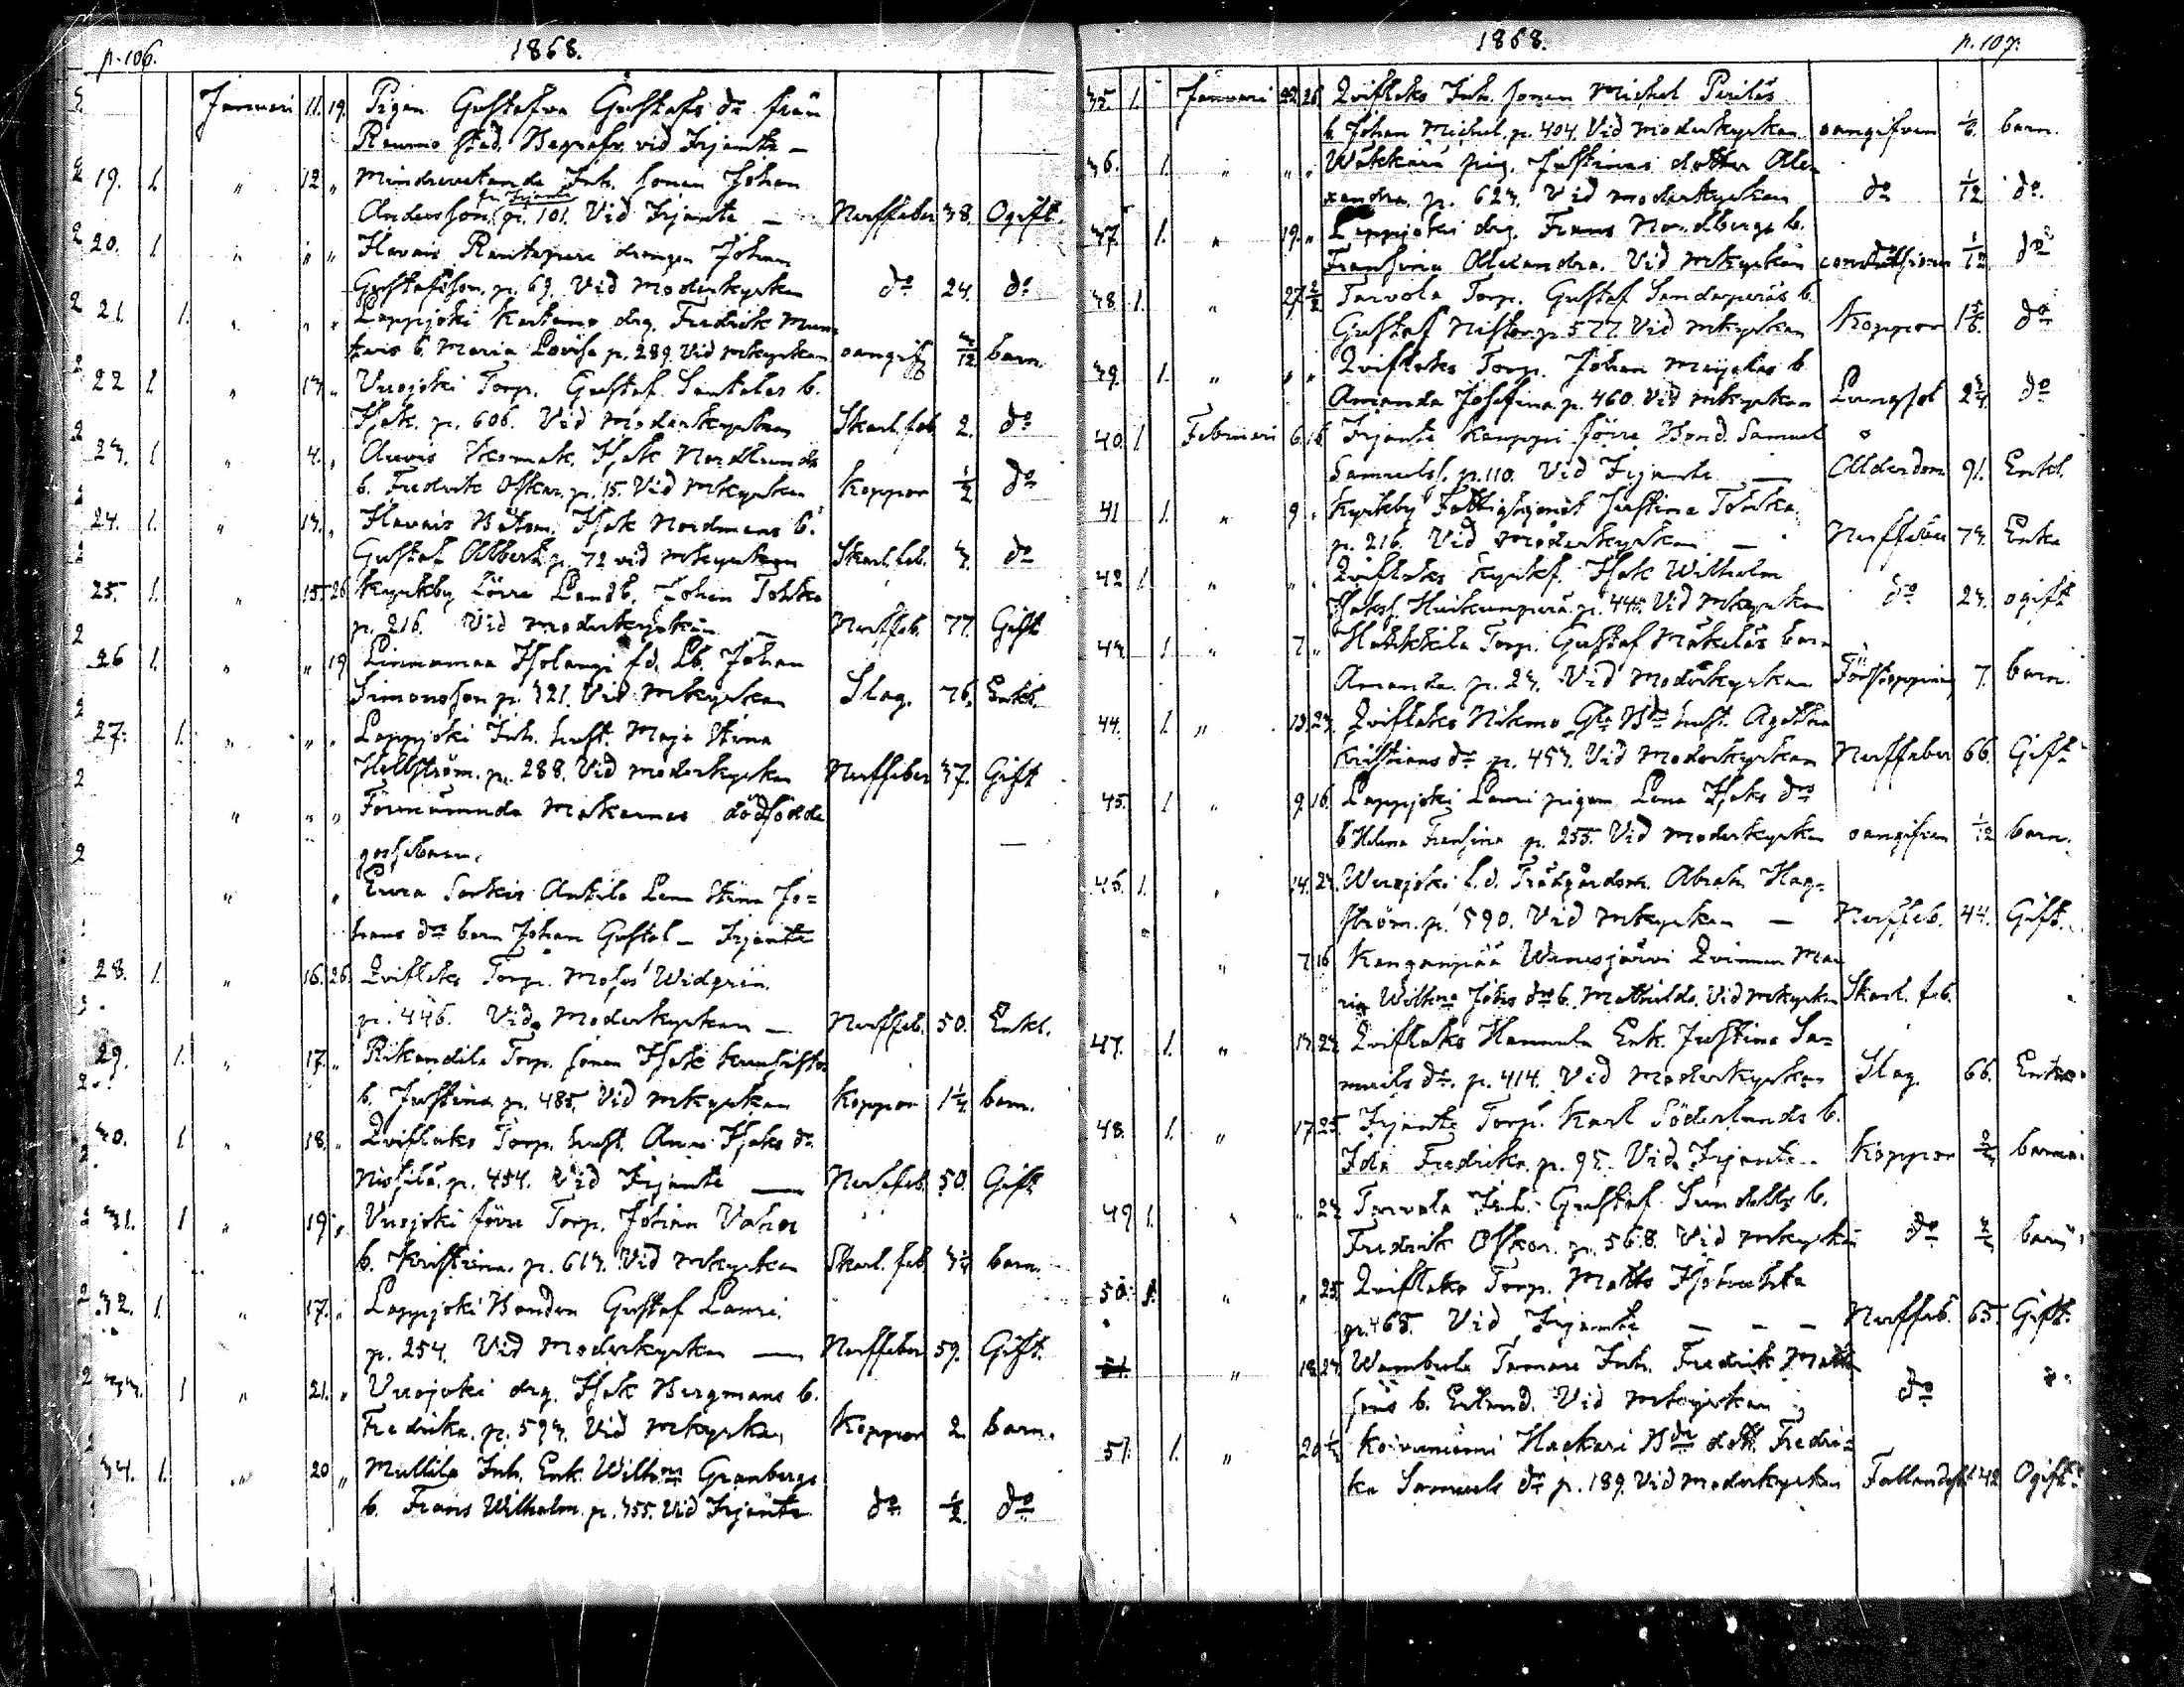 p. 106. 1868.
Januari 11. 19. Pigan Gustafva Gustafs dr från
Raumo stad. Begrafv. vid Irjanta —
19. 1. " 12 " Inh. sonen Johan
fr Irjanta
Andersson, p. 101. Vid Irjanta — Nerffeber 38. Ogift.
20. 1. " " " Havais Rantapere drengen Johan
Gustafsson. p. 69. Vid Moderkyrkan do 24. do
21. 1. " " " Lappijoki drg. Fredrik
b. Maria Lovisa p. 289. Vid mkyrkan oangif 3/12 barn.
22 1 " 13 " Vuojoki Torp. Gustaf Santalas b.
Isak. p. 606. Vid Moderkyrkan Skarl. feb 2. do
23. 1. " 4. " Auvis Isak Nordlunds
b. Fredrik Oskar. p. 15. Vid Mkyrkan Koppor 1/2 do
24. 1. " 13. " Havais Isak Nordmans b.
Gustaf Albert p. 72 vid Mkyrkan Skarl. feb. 3. do
25. 1. " 15. 26 Kyrkby Förre Landb. Johan Tohka
p. 216. Vid moderkyrkan — Nerffeb. 77. Gift
26 1. " " 19 Linnamaa Isotangi f.d. Lb. Johan
Simonsson p. 321. Vid Mkyrkan Slag. 76. Enkl.
27. 1. " " " Lappijoki Inh. hust. Maja Stina
Hellström. p. 288. Vid moderkyrkan Nerffeber 37. Gift
" " " Makarnas dödfödda
gossebarn. —
" " Eura Sorkis Anttila Lena Stina Jo=
hans dr barn Johan Gustaf — Irjanta
28. 1. " 16. 26. Qviflaks Torp. Moses Widgrén.
p. 446. Vid Moderkyrkan — Nerffeb. 50. Enkl.
29. 1. " 17. " Rikandila Torp. sonen Isak
b. Justina p. 485. Vid mkyrkan Koppor 1 1/4 barn.
30. 1 " 18. " Qviflaks Torp. hust. Anna Isaks dr
p. 454. Vid Irjanta — Nerffeb. 50. Gift
31. 1 " 19 " Vuojoki förre Torp. Johan
b. Kristina. p. 613. Vid mkyrkan Skarl. feb barn.
32. 1. " 17. " Lappijoki Bonden Gustaf Lauri.
p. 254. Vid Moderkyrkan — Nerffeber 59. Gift.
33. 1 " 21. " Vuojoki drg. Isak Bergmans b.
Fredrika. p. 593. Vid mkyrkan Koppor 2. barn.
34. 1. " 20 " Mullila Inh. Enk. Wilhna Granbergs
b. Frans Wilhelm. p. 355. Vid Irjanta do 1/2. do
1868. p. 107.
35. 1. Januari 22 26 Qviflaks Inh. sonen Michel
b. Johan Michel. p. 404. Vid Moderkyrkan oangifven 1/6. barn.
36. 1. " " " pig. Justinas dotter Ale-
xandra. p. 623. Vid moderkyrkan do 1/12 do.
37. 1. " 19. " Lappijoki drg. Frans Nordbergs b.
Fransina Alexandra. Vid mkyrkan 1/12 do
38 1. " 27. 2/2 Tarvola Torp. Gustaf Sandapuräs b.
Gustaf Nestor p. 577. Vid mkyrkan Koppor 1 5/6. do
39. 1. " " " Qviflaks Torp. Johan b
Amanda Josefina. p. 460. Vid mkyrkan Lungsot 2 3/4 do
40. 1 Februari 6. 16 Irjanta Kauppi förre Bond. Samuel
Samuelss. p. 110. Vid Irjanta — Ålderdom 91. Enkl.
41 1. " 9 " Kyrkby Fattighjonet Justina Tohka.
p. 216. Vid Moderkyrkan — Nerffeber 73. Enka
42 1 " " " Qviflaks Isak Wilhelm
Isakss. p. 445. Vid Mkyrkan do 23. ogift
43. 1. " 7 " Hankkila Torp. Gustaf Mäkeläs barn
Amanda. p. 23. Vid Moderkyrkan Förstoppning 7. barn.
44. 1. " 13. 23. Qviflaks Nikmo Gla Bde hust. Agatha
Kristians dr p. 453. Vid Moderkyrkan Nerffeber 66. Gift
45. 1 " 9. 16. Lappijoki Lauri pigan Lena Isaks drs
b Helena Fransina p. 255. Vid moderkyrkan oangifven 1/12 barn.
46. 1. " 14. 23. Vuojoki f.d. Trädgårdsm. Abrah. Hag-
ström. p. 590. Vid mkyrkan — Nerffeb. 44. Gift.
" 7 16 Kangenpää Wenesjärvi Qvinnan Ma-
ria Wilhna Johs drs b. Mathilda. Vid Mkyrkan Skarl. feb.
47. 1. " 13. 23 Qviflaks Hannula Enk. Justina Sa=
muels dr. p. 414. Vid Moderkyrkan Slag. 66. Enka
48. 1. " 17 25. Irjanta Torp. Karl Söderlunds b.
Ida Fredrika. p. 95. Vid Irjanta. Koppor barn
49 1. " " 23 Tarvola Inh. Gustaf Sundells b.
Fredrik Oskar. p. 568. Vid mkyrkan do barn
50. 1. " " 25. Qviflaks Torp. Matts
p. 465. Vid Irjanta — — — Nerffeb. 65. Gift.
51. " 18 23. Wambula Inh. Fredrik Matts
sons b. Erland. Vid mkyrkan do
51. 1. " 20 Koivuniemi Hackari Bde dott. Fredri=
ka Samuels dr p. 189. Vid moderkyrkan Fallandesot 42 Ogift